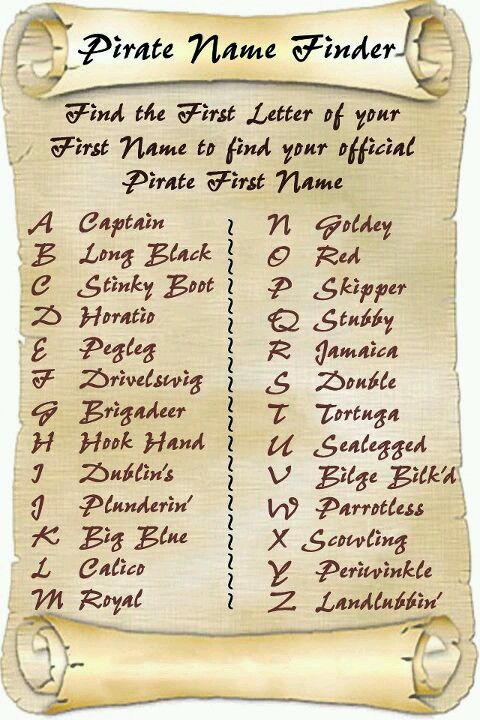 Pirate Name Finder
Find the First Letter of your
First Name to find your official
Pirate First Name
A Captain
B Long Black
C Stinky Boot
D Horatio
E Pegleg
F Drivelswig
G Brigadeer
H Hook Hand
I Dublin's
J Plunderin'
K Big Blue
L Calico
M Royal
N Goldey
O Red
P Skipper
Q Stubby
R Jamaica
S Double
T Tortuga
U Sealegged
V Bilge Bilk'd
W Parrotless
X Scowling
Y Periwinkle
Z Landlubbin'